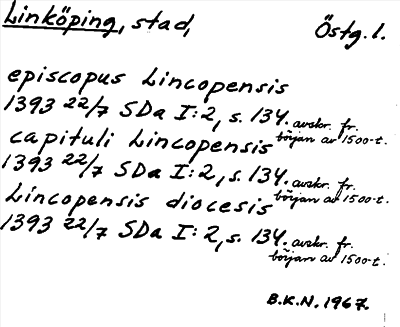 Linköping, stad, Östg. l.
episcopus Lincopensis
1393 22/7 SDa I:2, s. 134. avskr. fr. början av 1500-t.
capituli Lincopensis
1393 22/7 SDa I:2, s. 134. avskr. fr. början av 1500-t.
Lincopensis diocesis
1393 22/7 SDa I:2, s. 134. avskr. fr. början av 1500-t.
B.K.N. 1967.